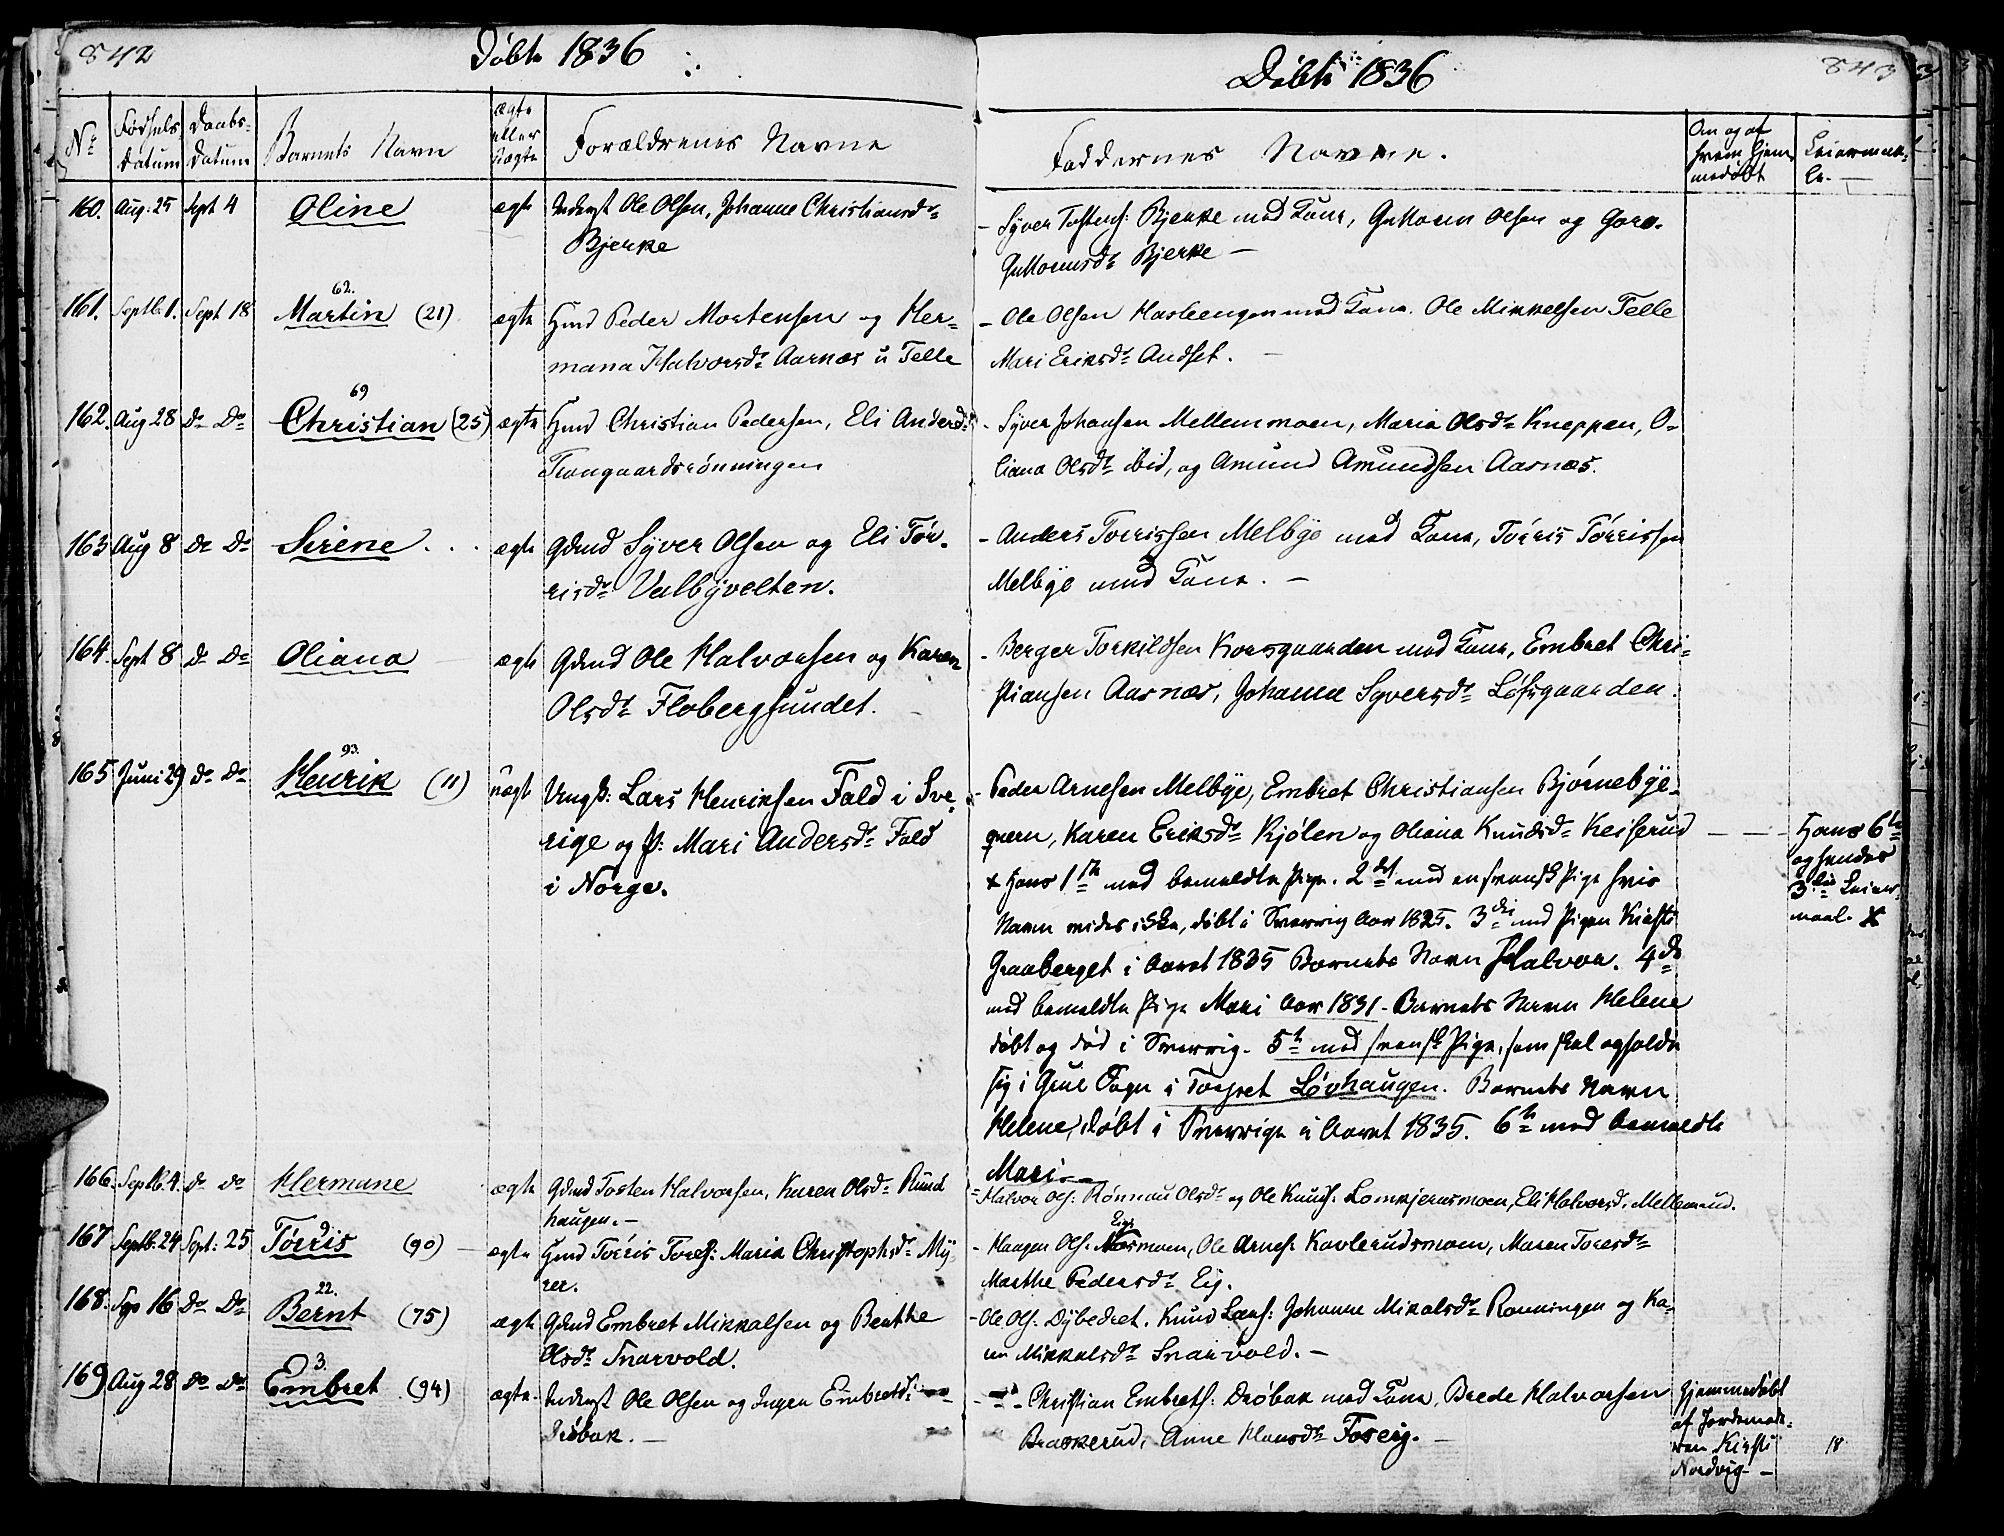 842
Döbte 1836
Nr
Födsels Datum
Daabs-Datum
Barnets Navn
ægte eller uægte
Forældrenes Navne
160. Aug: 25 Sept 4 Oline ægte Inderst Ole Olsen, Johanne Christiansdr
Bjerke
62.
161. Septb. 1. Sept 18 Martin (21) ægte Hmd Peder Mortensen og Her-
mana Halvorsdr Aarnæs u Telle
69
162. Aug 28 Do Do Christian (25) ægte Hmd Christian Pedersen, Eli Andersdr
Trangaardsrönningen
163 Aug 8 Do Do Sirene ægte Gdmd Syver Olsen og Eli Tör-
risdr Valbyvelten.
164. Sept 8 Do Do Oliana ægte Gdmd Ole Halvorsen og Karen
Olsdr Flobergsundet.
93.
165 Juni 29 Do Do Henrik (11) uægte Ungk: Lars Henriksen Fald i Sve-
rige og P: Mari Andersdr Fald
i Norge.
166. Septb. 4. do do Hermane ægte Gdmd Tosten Halvorsen, Karen Olsdr Rund
haugen. -
167 Septb. 24 Sept: 25 Törris (90) - ægte Hmd Törris Tores: Maria Christophsdr My-
rer.
22.
168. Sep 16 Do Do Bernt (75) ægte Gdmd Embret Mikkelsen og Berthe
Olsdr Snarvold.
3.
169 Aug 28 do do Embret (94) ægte. Inderst Ole Olsen og Ingen Embretsd:
Dröbak. -
843
Döbte 1836
Faddernes Navne.
Om og af hvem hjemmedöbt
Leiermaale.
- Syver Tostens: Bjerke med Kone, Guttorm Olsen og Goro
Guttormsdr Bjerke -
- Ole Olsen Hasleengen med Kone. Ole Mikkelsen Telle
Mari Eriksdr Audset. -
- Syver Johansen Mellemmoen, Maria Olsdr Kneppen, O-
liana Olsdr ibid, og Amund Amundsen Aasnæs.
- Anders Torrissen Melbye med Kone, Törris Törrissen
Melbye med Kone. -
- Berger Torkildsen Korsgaarden med Kone, Embret Chri-
stiansen Aasnæs, Johanne Syversdr Löfsgaarden.
- Peder Arnesen Melbye, Embret Christiansen Björnebye-
qvern, Karen Eriksdr Kjölen og Oliana Knudsdr Keiserud - - - Hans 6te
og hendes
3die Leier-
maal. X
X Hans 1te med bemeldte Pige. 2det med en svensk Pige hvis
Navn vides ikke, döbt i Sverrig Aar 1825. 3die med Pigen Kirsti
Graaberget i Aaret 1835 Barnets Navn Halvor. 4de
med bemeldte Pige Mari Aar 1831 - Barnets Navn Helene
döbt og död i Sverrig. 5te med svensk Pige, som skal opholde
sig i Grue Sogn i Torpet Lövhaugen. Barnets Navn
Helene, döbt i Sverrige i Aaret 1835. 6te med bemeldte
Mari -
- Halvor Ols: Rönnau Olsdr og Ole Knuds: Lomkjernsmoen, Eli Halvorsd. Mellemrud.
- Haagen Ols: Eigsmoen, Ole Arnes: Kavlerudsmoen, Maren Toresdr
Marthe Pedersdr Eig.
- Ole Ols. Dybedret. Knud Lars: Johanne Mikelsdr Rönningen og Ka-
ren Mikkelsdr Snarvold. -
- Christian Embrets: Dröbak med Kone, Brede Halvorsen
Braskerud, Anne Hansdr Foseig. -
Hjemmedöbt
af Jordemode-
ren Kirsti
Nordvig -
18